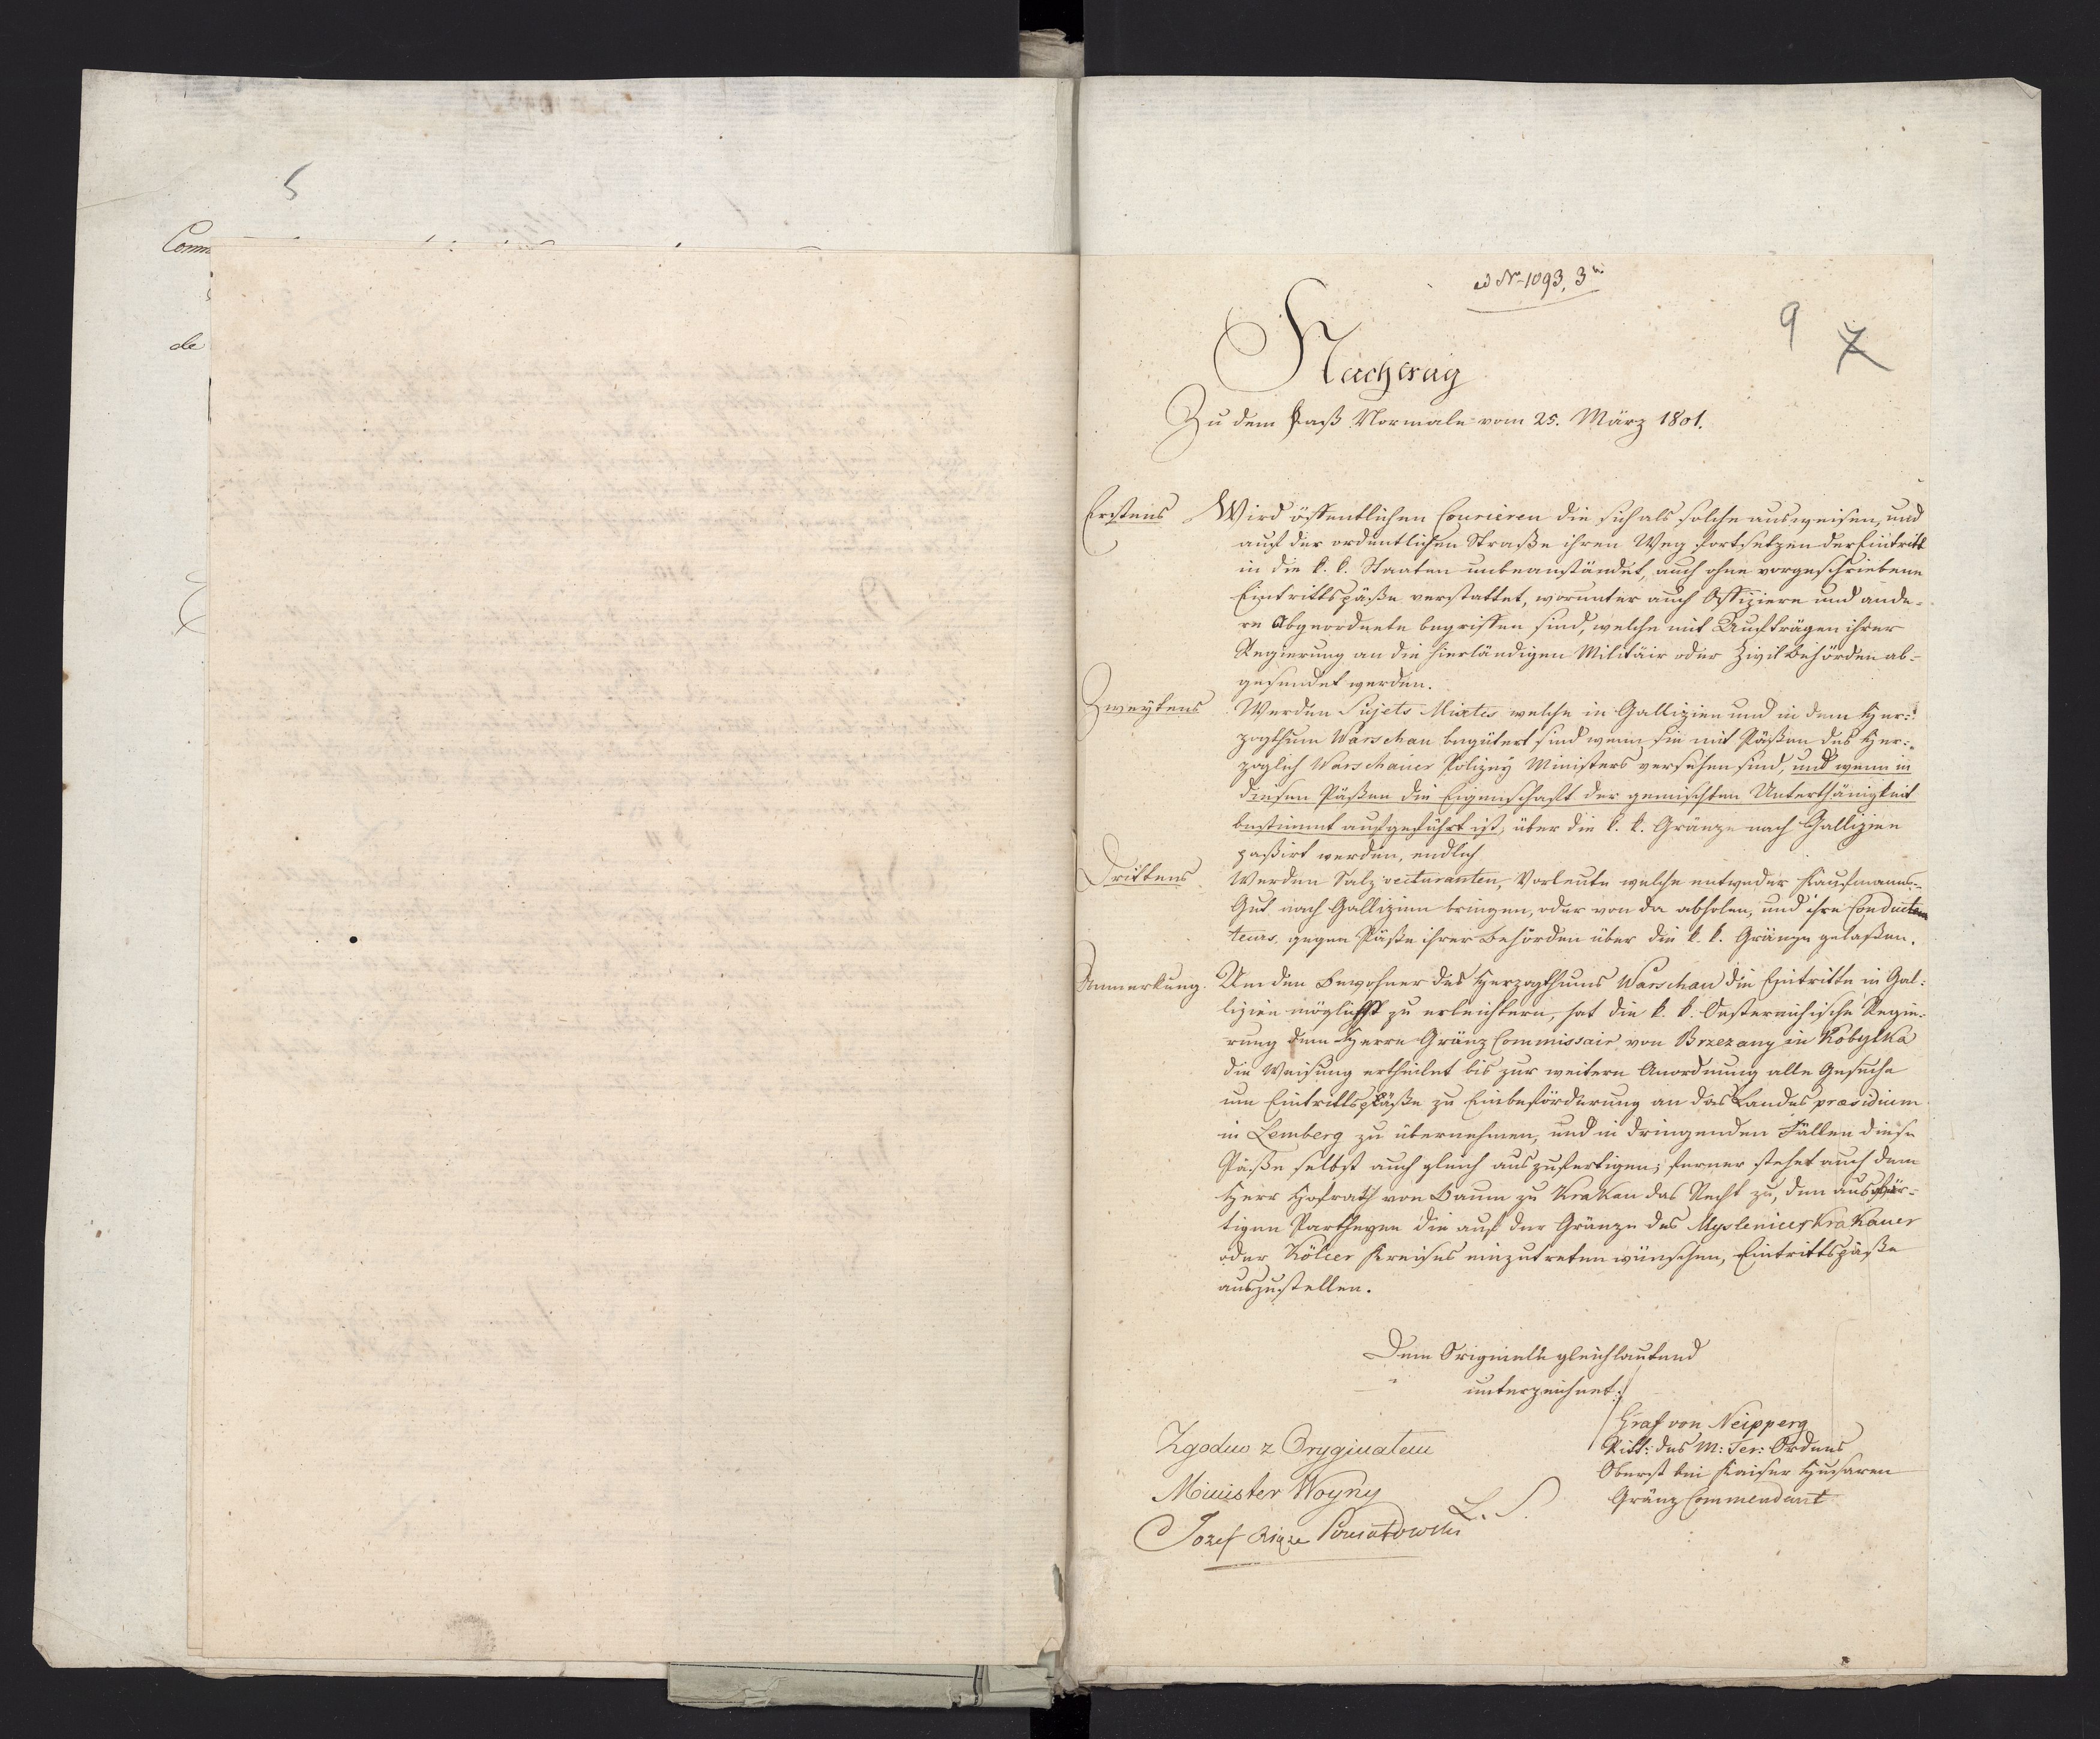 5
Comm
de
ad Nr 1093, 3
9 7
Nachtrag
Zu dem Paß Normale vom 25. März 1801.
Erstens Wird öffentlichen Courieren die sich als solche ausweisen, und
auf der ordentlichen Straße ihren Weg fortsetzen der Eintritt
in die k. k. Staaten unbeanständet, auch ohne vorgeschriebene
Eintrittspäße verstattet, worunter auch Offiziere und ande-
re Abgeordnete begriffen sind, welche mit Aufträgen ihrer
Regierung an die hierländigen Militäir oder Zivil Behörden ab-
gesendet werden.
Zweytens Werden Sujets Mixtes welche in Gallizien und in dem Her-
zogthum Warschau begütert sind wenn sie mit Päßen des Her-
zoglich Warschauer Polizey Ministers versehen sind, und wenn in
diesen Päßen die Eigenschaft der gemischten Unterthänigkeit
bestimmt aufgeführt ist, über die k. k. Gränze nach Gallizien
paßirt werden, endlich
Drittens Werden Salz vecturanten, Vorleute welche entweder Kaufmanns-
Gut nach Gallizien bringen, oder von da abholen, und ihre Conducten
teurs, gegen Päße ihrer Behörden über die k. k. Gränze gelaßen.
Anmerkung. Um den Bewohner des Herzogthums Warschau die Eintritte in Gal-
lizien möglichst zu erleichtern, hat die k. k. Oesterreichische Regie-
rung dem Herrn Gränz Commissair von Brzezany in Kobylka
die Weisung ertheilet bis zur weitern Anordnung alle Gesuche
um Eintrittspäße zu Einbeförderung an das Landes præsidium
in Lemberg zu übernehmen, und in dringenden Fällen diese
Päße selbst auch gleich auszufertigen; ferner stehet auch dem
Herr Hofrath von Baum zu Krakau das Recht zu, den auswär-
tigen Partheyen die auf der Gränze des Myslenicer Krakauer
oder Kölcer Kreises einzutreten wünschen, Eintrittspäße
auszustellen.
Dem Originale gleichlautend
unterzeichnet:
Graf von Neipperg
Ritt: des M: Ter: Ordens
Oberst bei Kaiser Husaren
Gränz Commendant
Zgodno z Oryginałem
Minister Woyny
L. S.
Jozef Xiąze Poniatowski